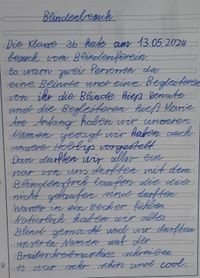 Blindenbesuch
Die Klasse 3b hate am 13.05.2024
besuch vom Blindenferein
Es warn zwei Personen da
eine Blinde und eine Begleiterin
von ihr die Blinde hieß Renate
und die Begleiterin hieß Marie
Am Anfang haben wir unseren
Namen gesagt wir haben auch
unsere Hobbys vorgestellt
Dan durften wir alle ein
mal von uns durften mit dem
Blindenstock laufen ales die
nicht gelaufen sind durften
Wasser in den Becher füllen
Natürlich haben wir alles
Blind gemacht und wir durften
unseren Namen auf der
schreiben
es war sehr schön und cool